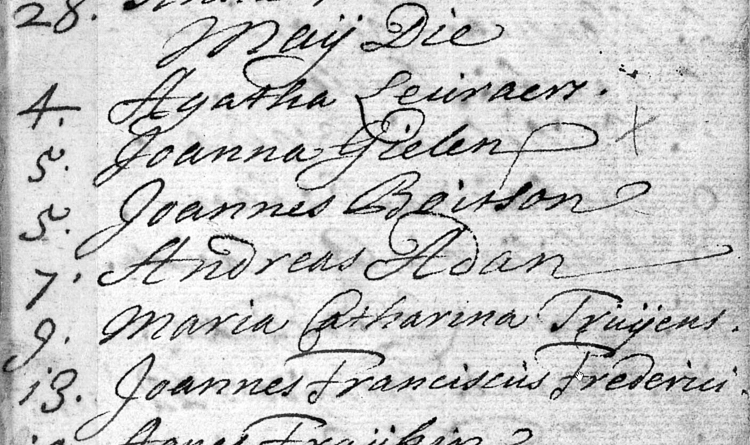 28.
Maij Die
4. Agatha Leuraers.
5. Joanna Gielen
5. Joannes Boitson
7. Andreas Adan
9. Maria Catharina Truijens.
13. Joannes Franciscus Frederici.